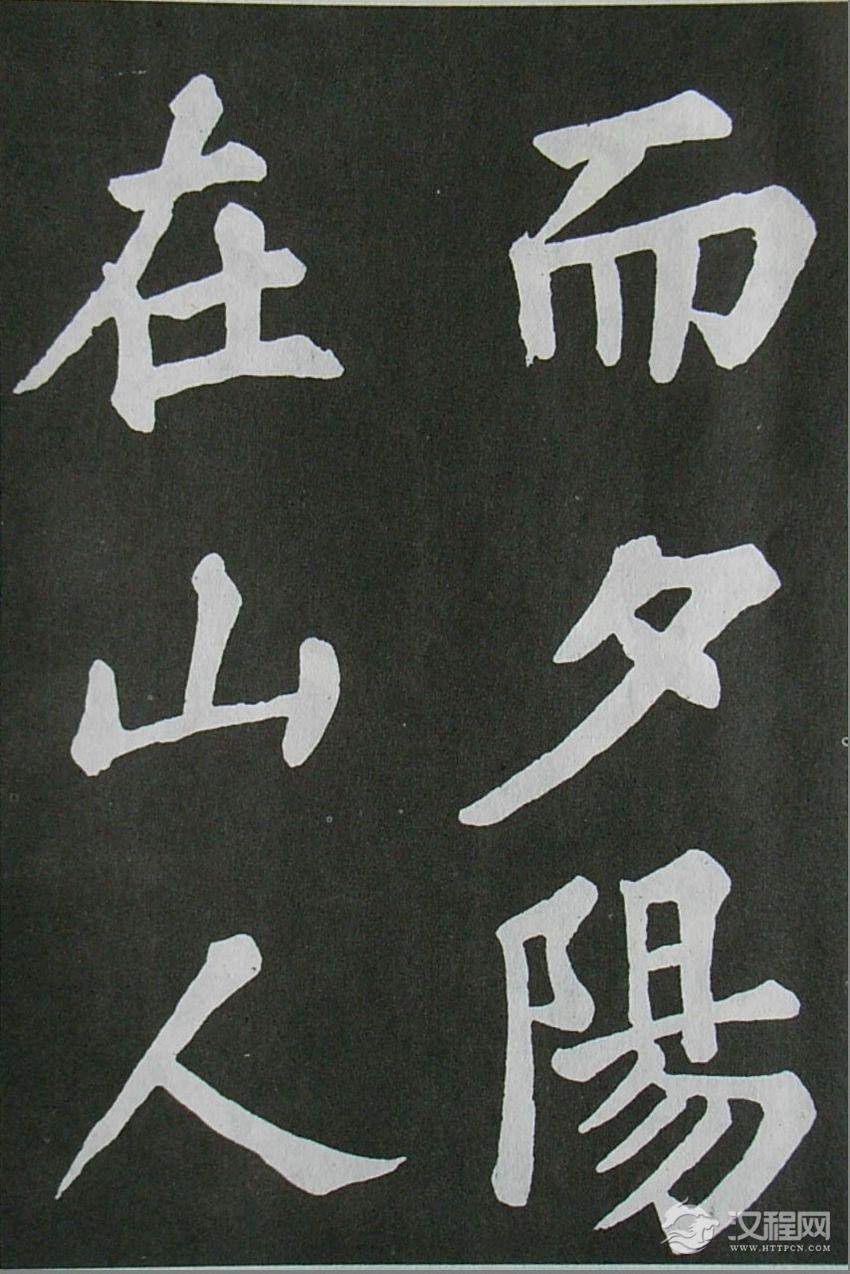 而夕陽
在山人
汉程网
WWW.HTTPCN.COM